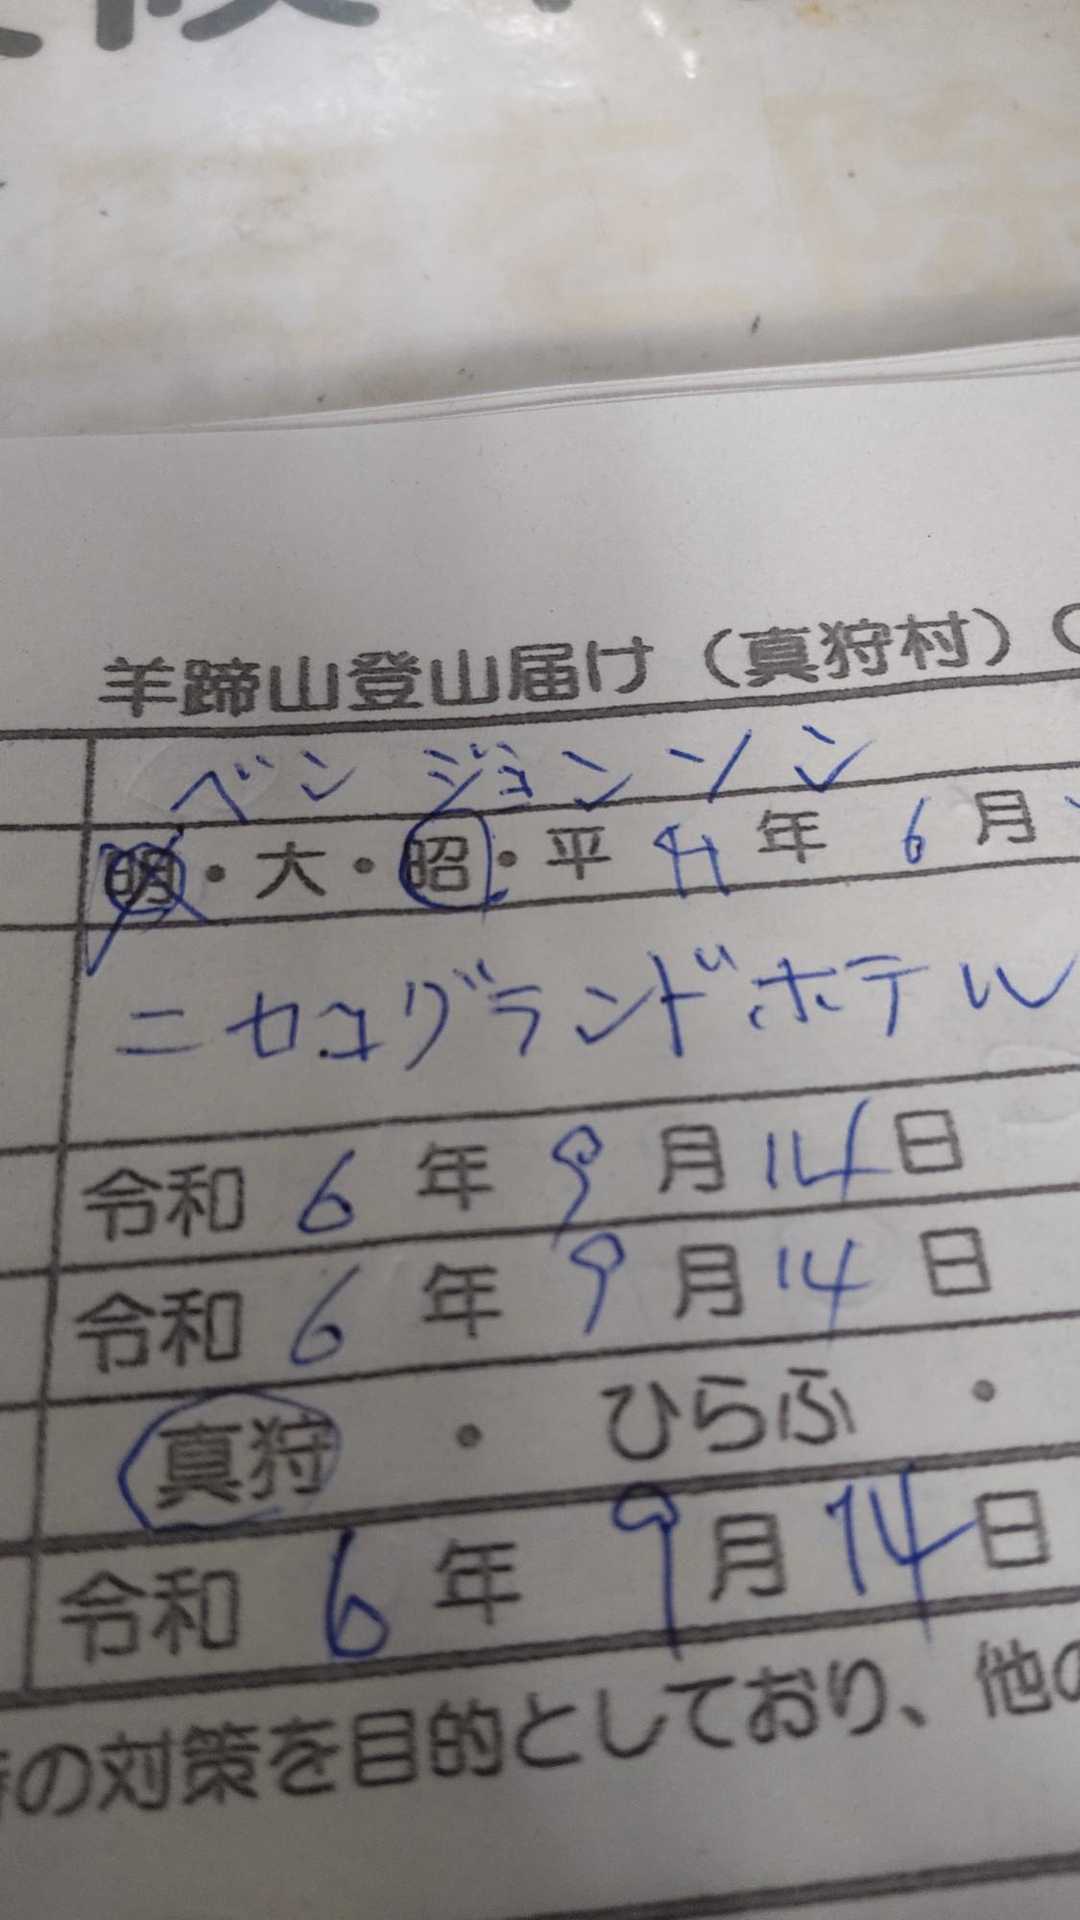 羊蹄山登山届け（真狩村）
ベン ジョンソン
明・大・昭・平 41年 6月
ニセコグランドホテル
令和 6年 9月 14日
令和 6年 9月 14日
真狩 ・ ひらふ ・
令和 6年 9月 14日
の対策を目的としており、他の